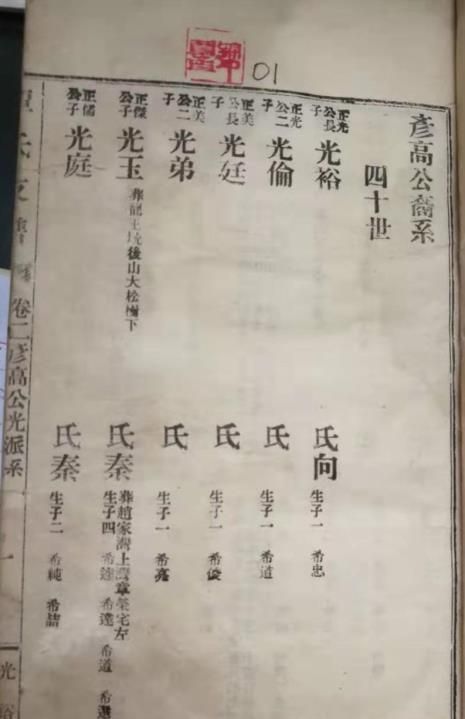 01
彦高公裔系
四十世
正光公長子 光裕
氏向 生子一 希忠
正光公二子 光倫
氏 生子一 希道
正美公長子 光廷
氏 生子一 希俊
正美公二子 光弟
氏 生子一 希亮
正傑公子 光玉 葬龍王坑後山大松樹下
氏秦 葬趙家灣上灣章榮宅左 生子四 希達 希道 希選
正儒公子 光庭
氏秦 生子二 希純 希詰
氏支譜 卷二彦高公光派系 一 光裕